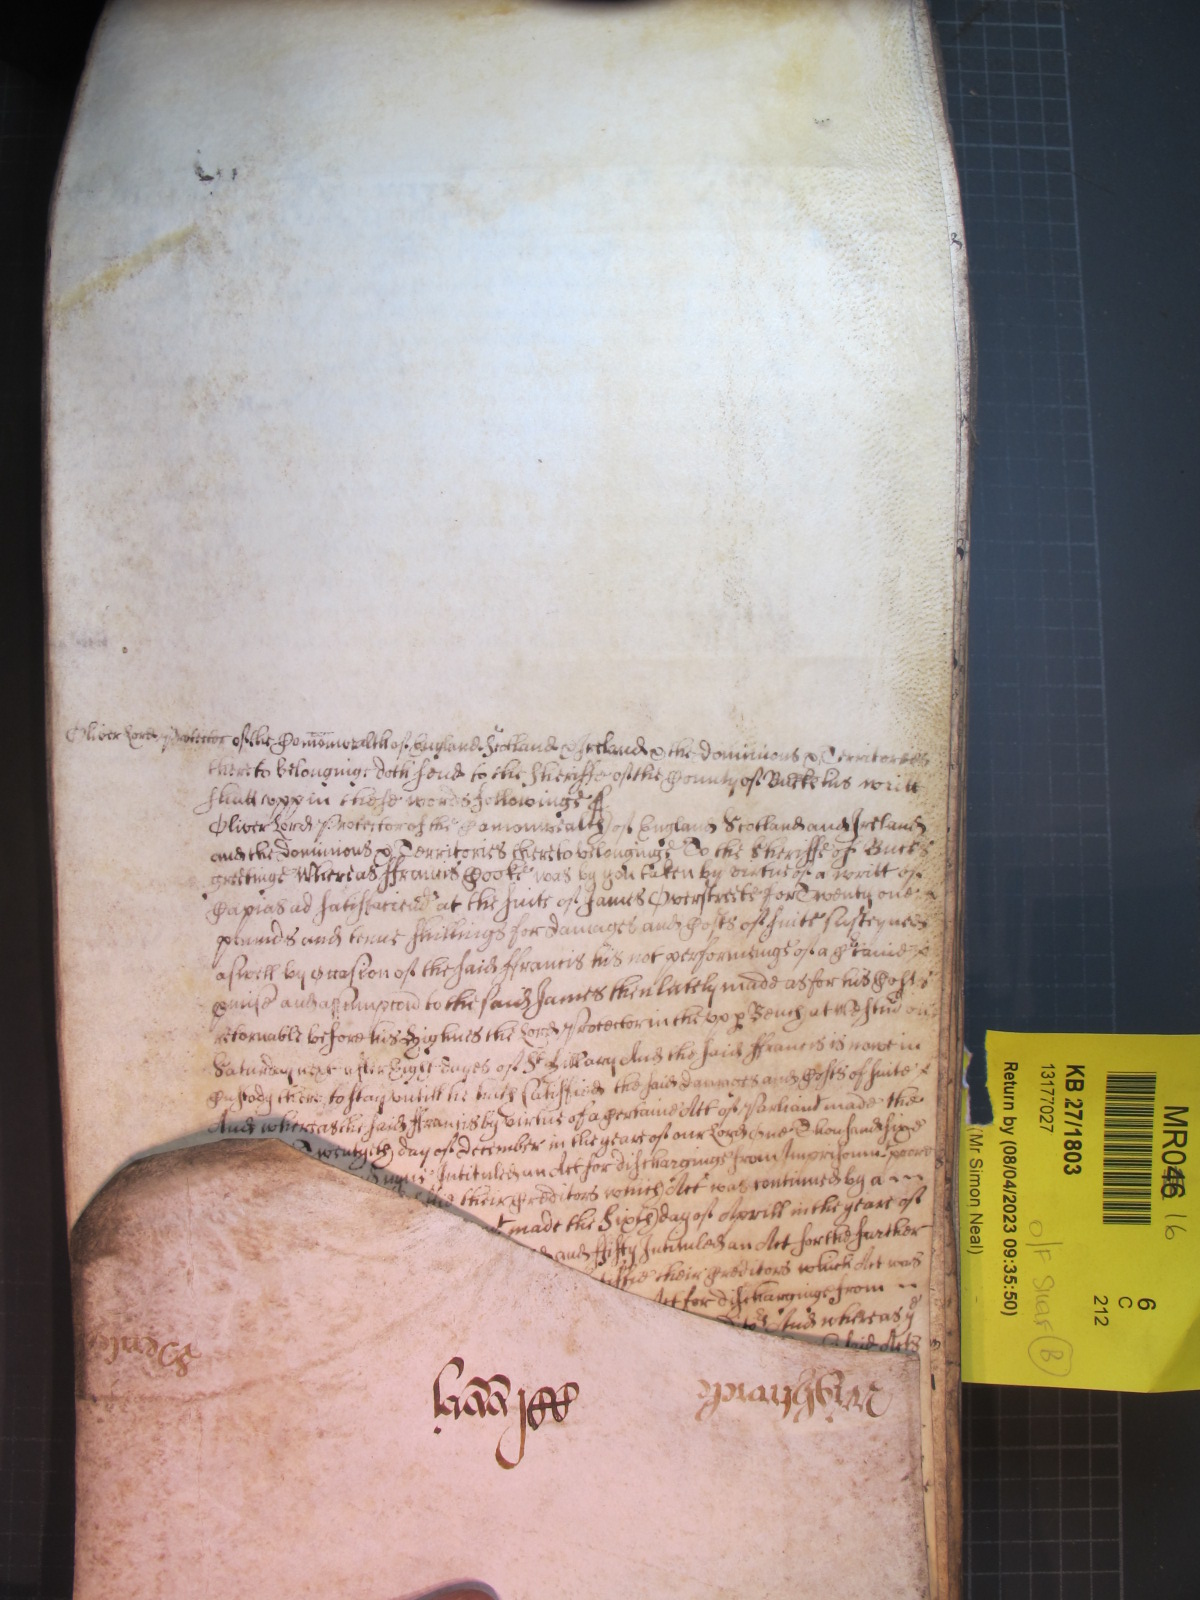 Oliver Lord Protector of the Comonwealth of England Scotland & Ireland & the dominions & Territories
thereto belonginge doth send to the Sheriffe of the County of Bucks his writt
shutt upp in these words followinge ss
Oliver Lord Protector of the Comonwealth of England Scotland and Ireland
and the dominions & Territories thereto belonginge To the Sheriffe of Bucks
greetinge Whereas ffrancis Cooke was by you taken by virtue of a writt of
Capias ad satisfaciend at the suite of James Overstreete for Twenty one
pounds and tenne shillings for damages and Costs of suite susteyned
aswell by occasion of the said ffrancis his not performinge of a Certaine
pmise and assumption to the said James then lately made as for his Costs
retornable before his Highnes the Lord Protector in the upp Bench at Westm on
Saturday next after Eight dayes of St Hillary And the said ffrancis is nowe in
Custody there to stay untill he hath satisfied the said damages and Costs of suite
And whereas the said ffrancis by virtue of a Certaine Act of Parliamt made the
Twentyeth day of December in the yeare of our Lord One Thousand sixe
Intituled an Act for discharginge from Imprisonmt poore
their Creditors which Act was continued by a
made the Sixth day of Aprill in the yeare of
and ffifty Intituled an Act for the further
their Creditors which Act was
Act for discharginge from
And whereas ye
said Acts
Wightwick
KB 27/1803
13177027
Return by (08/04/2023 09:35:50)
(Mr Simon Neal)
MR046 16
6
C
212
O/F Shelf (B)